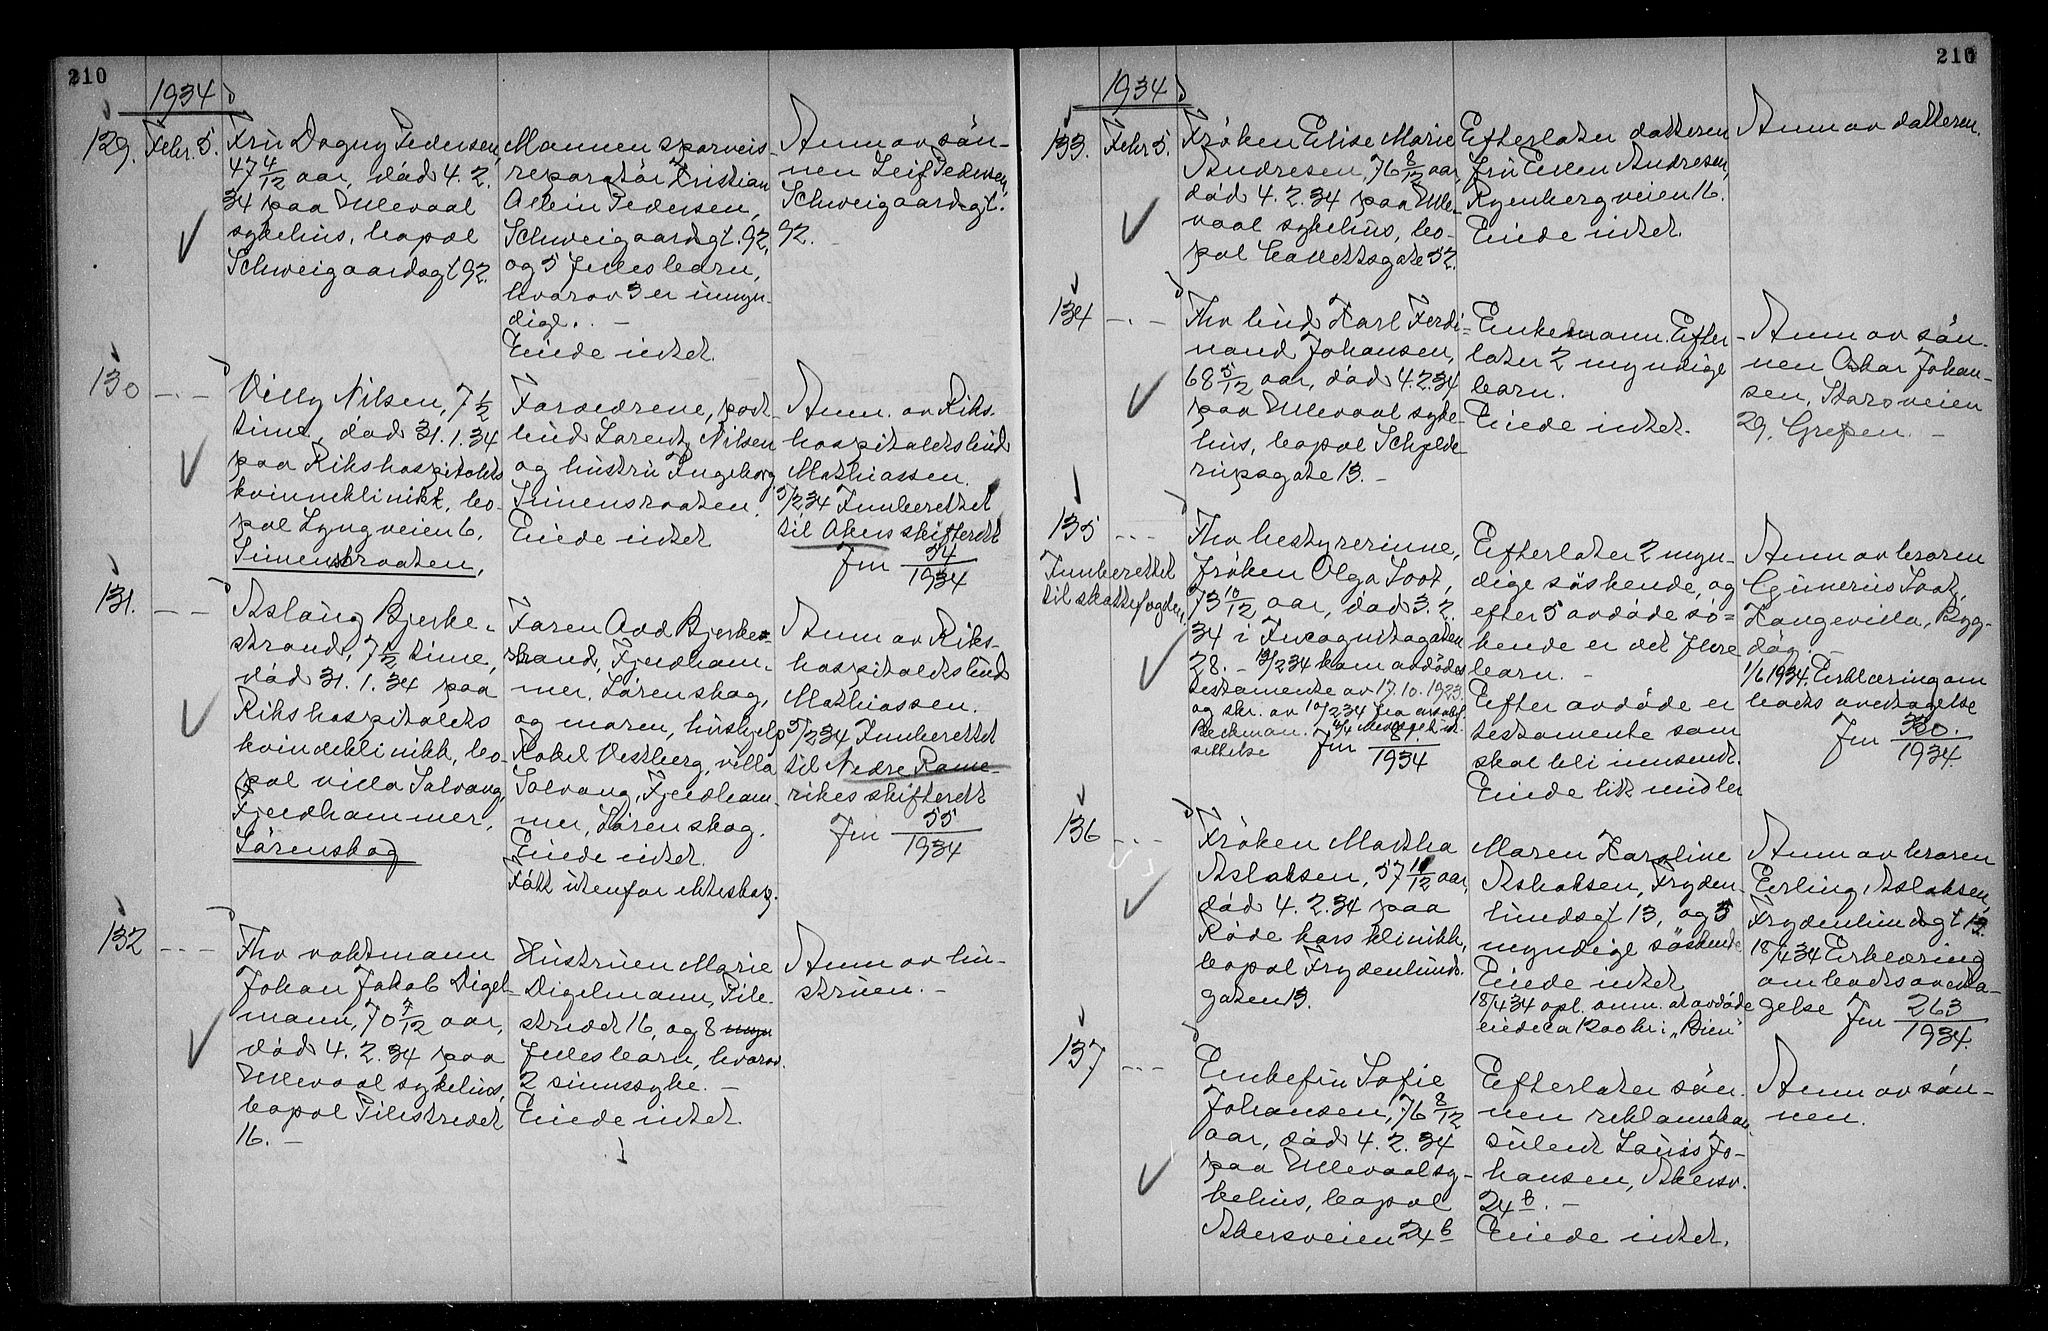 210
1934
129. Febr. 5. Frú Dagny Pedersen,
47 4/12 aar, död 4. 2.
34 paa Ullevaal
sykehús, bopæl
Schweigaardsgt 92.
Mannen sporveis-
reparatör Kristian
Albin Pedersen,
Schweigaardsgt. 92,
og 5 felles barn,
hvorav 3 er úmyn-
dige. . —
Eiede intet.
Anm av sön-
nen Leif Pedersen,
Schweigaardsgt.
92.
130 — . — Villy Nilsen, 7 1/2
time, död 31. 1. 34
paa Rikshospitalets
kvinneklinikk, bo-
pæl Lyngveien 6,
Simensbraaten,
Foreldrene, post-
búd Lorentz Nilsen
og hústrú Ingeborg,
Simensraaten.
Eiede intet
Anm. av Riks-
hospitalets búd
Mathiassen.
5/2 34 Innberettet
til Akers skifterett
Jnr 54/1934
131. — — Aslaúg Bjerke-
strand, 7 1/2 time,
död 31. 1. 34 paa
Rikshospitalets
kvindeklinikk, bo-
pæl villa Solvang,
Fjeldhammer,
Lörenskog
Faren Odd Bjerke-
strand, Fjeldham-
mer, Lörenskog,
og moren, húshjelp
Rakel Vestberg, villa
Solvang, Fjeldham-
mer, Lörenskog.
Eiede intet.
Födt útenfor ekteskap.
Anm av Riks-
hospitalets búd
Mathiassen.
5/2 34 Innberettet
til Nedre Rome-
rikes skifterett
Jnr 55/1934
132 - - - Fhv vaktmann
Johan Jakob Digel-
mann, 70 7/12 aar,
död 4. 2. 34 paa
Ullevaal sykehús,
bopæl Pilestredet
16. —
Hústrúen Marie
Digelmann, Pile-
stredet 16, og 8 myn
felles barn, hvorav
2 sinnssyke. —
Eiede intet.
Anm av hú-
strúen. —
210
1934
133. Febr 5. Fröken Elise Marie
Andresen, 76 8/12 aar,
död 4. 2. 34 paa Ulle-
vaal sykehús, bo-
pæl Collettsgate 52.
Efterlater datteren
frú Ellen Andresen,
Ryenbergveien 16.
Eiede intet.
Anm av datteren.
134 — . — Fhv búd Karl Ferdi-
nand Johansen,
68 5/12 aar, död 4. 2. 34
paa Ullevaal syke-
hús, bopæl Schjelde-
rúpsgate 13. —
Enkemann. Efter-
later 2 myndige
barn.
Eiede intet.
Anm av sön-
nen Oskar Johan-
sen,
29, Grefsen. —
135 - - - Fhv bestyrerinne,
fröken Olga Soot,
73 10/12 aar, död 3. 2.
34 i Incognitogaten
28. — 10/2 34 kom avdödes
testamente av 17. 10. 1923
og skr. av 10/2 34 fra
Beckman.
Jnr 81./1934
Innberettet
til skattefogden.
Efterlater 2 myn-
dige söskende, og
efter 5 avdöde sö-
kende er det flere
barn. —
Efter avdöde er
testamente som
skal bli innsendt.
Eiede litt midler
Anm av broren
Gúnerius Soot,
Haugevilla, Byg-
döy. —
1/6 1934. Erklæring om
boets overtagelse
Jnr 330./1934.
136 - - - Fröken Martha
Aslaksen, 57 10/12 aar,
död 4. 2. 34 paa
Röde kors klinikk,
bopæl Frydenlúnds-
gaten 13.
Moren Karoline
Aslaksen, Fryden-
lúndsgt 13, og 5
myndige söskende.
Eiede intet
18/4 34 opl. anm. at avdöde
eiede ca 1200 kr. i „Bien"
Anm av broren
Erling Aslaksen,
Frydenlúndsgt 13.
18/4 34 Erklæring
om boets overta-
gelse Jnr 263/1934.
137 - - - Enkefrú Sofie
Johansen, 76 8/12
aar, död 4. 2. 34
paa Ullevaal sy-
kehús, bopæl
Akersveien 24 b
Efterlater sön-
nen reklamekon-
súlent Laúris Jo-
hansen, Akersv.
24 b. —
Eiede intet.
Anm av sön-
nen.